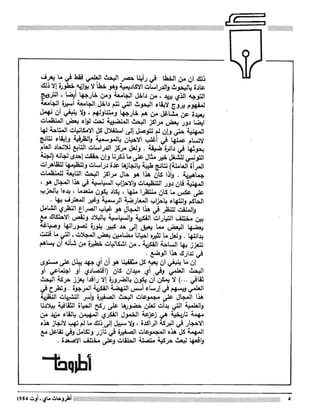 ذلك ان من الخطأ في رأينا حصر البحث العلمي فقط في ما يعرف
عادة بالبحوث والدراسات الاكاديمية وهو خطأ لا يوازيه خطورة إلا ذلك
التوجه الذي يريد، من داخل الجامعة ومن خارجها أيضا، الترويج
لمفهوم يروج لإبقاء البحوث التي تتم داخل الجامعة أسيرة الجامعة
بعيدة عن مشاغل من هم خارجها ومتناولهم، ولا ينبغي أن نهمل
أيضا دور بعض مراكز البحث المنضوية تحت لواء بعض المنظمات
المهنية حتى وإن لم تتوصل إلى استغلال كل الامكانيات المتاحة لها
لاتسام عملها في أغلب الاحيان بالموسمية والظرفية وإبقاء نتائج
بحوثها في دائرة ضيقة. ولعل مركز الدراسات التابع للاتحاد العام
التونسي للشغل خير مثال على ما ذكرنا وإن حققت إحدى لجانه (لجنة
المرأة العاملة) نتائج طيبة بانجازها عدة دراسات وتنظيمها لتظاهرات
جماهيرية. وإذا كان هذا هو حال مراكز البحث التابعة للمنظمات
المهنية فان دور التنظيمات والاحزاب السياسية في هذا المجال هو،
على عكس ما كان منتظرا منها، يكاد يكون منعدما، بدءا بالحزب
الحاكم وانتهاء بأحزاب المعارضة الرسمية وغير المعترف بها.
والملفت للنظر في هذا المجال هو غياب الصراع النظري الشامل
بين مختلف التيارات الفكرية والسياسية بالبلاد ونقص الاحتكاك مع
بعضها البعض مما يعيق إلى حد كبير بلورة تصوراتها وصياغة
بدائلها. ولعل ما تثيره أحيانا مضامين بعض المجلات، التي ما فتئت
تتعزز بها الساحة الفكرية، من اشكاليات خطيرة من شأنه ان يساهم
في تدارك هذا الوضع.
إن ما ينبغي ان يعيه كل مثقفينا هو أن أي جهد يبذل على مستوى
البحث العلمي وفي أي ميدان كان (اقتصادي أو اجتماعي أو
ثقافي ...) لا يمكن أن يكون بالضرورة إلا رافدا يعزز حركة البحث
العلمي ويسهم في إرساء أسس النهضة الفكرية المرجوة. وتطرح في
هذا المجال على مجموعات البحث الصغيرة وأسر النشريات النظرية
والعلمية التي بدأت تعلن حضورها على ركح الحياة الثقافية ببلادنا
مهمة تاريخية هي زعزعة الخمول الفكري المهيمن بالقاء مزيد من
الاحجار في البركة الراكدة، ولا سبيل إلى ذلك ما لم تهب لانجاز هذه
المهمة كل هذه المجموعات الصغيرة في تآزر وتكامل وفي تفاعل مع
واقعها نبعث حركية متصلة الحلقات وعلى مختلف الاصعدة.
أطروحات
4
أطروحات ماي ـ أوت 1984